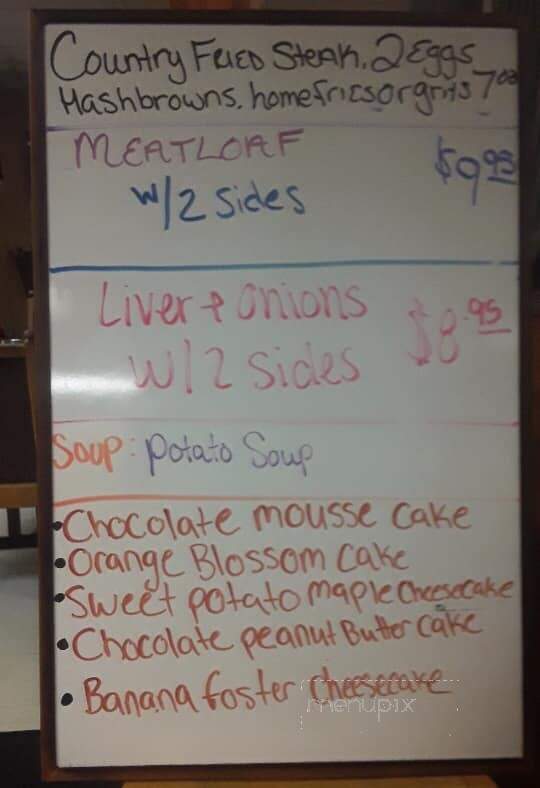 Country Fried Steak. 2 Eggs
Hashbrowns. homefries or grits 7
MEATLOAF $9.95
w/2 sides
Liver & onions $8.95
w/2 sides
Soup: potato Soup
• Chocolate mousse cake
• Orange Blossom cake
• Sweet potato maple cheesecake
• Chocolate peanut Butter cake
• Banana foster cheesecake
menupix